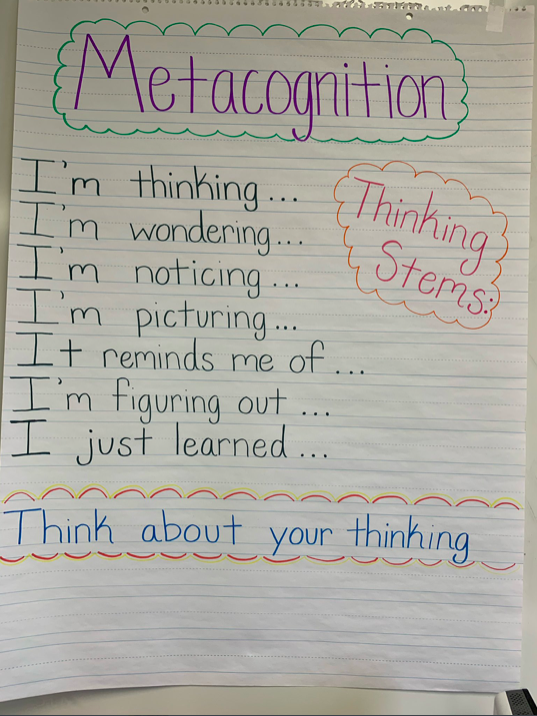 Metacognition
I'm thinking...
I'm wondering...
I'm noticing...
I'm picturing...
It reminds me of ...
I'm figuring out ...
I just learned ...
Thinking
Stems:
Think about your thinking